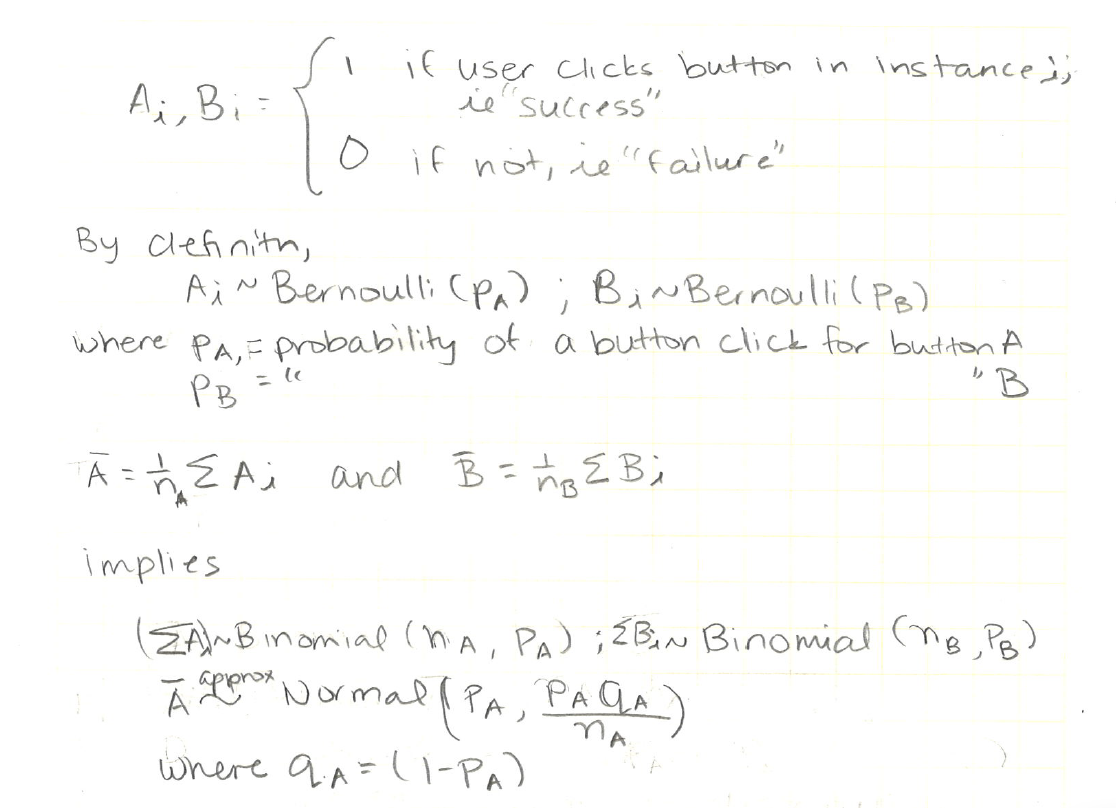 Aᵢ, Bᵢ = { 1 if user clicks button in instance i;
ie "success"
0 if not, ie "failure"
By definitn,
Aᵢ ~ Bernoulli (p_A) ; Bᵢ ~ Bernoulli (p_B)
where p_A, = probability of a button click for button A
p_B = " " B
Ā = 1/n_A Σ Aᵢ and B̄ = 1/n_B Σ Bᵢ
implies
(ΣAᵢ) ~ Binomial (n_A, p_A) ; ΣBᵢ ~ Binomial (n_B, p_B)
Ā approx ~ Normal (p_A, p_A q_A / n_A)
where q_A = (1-p_A)